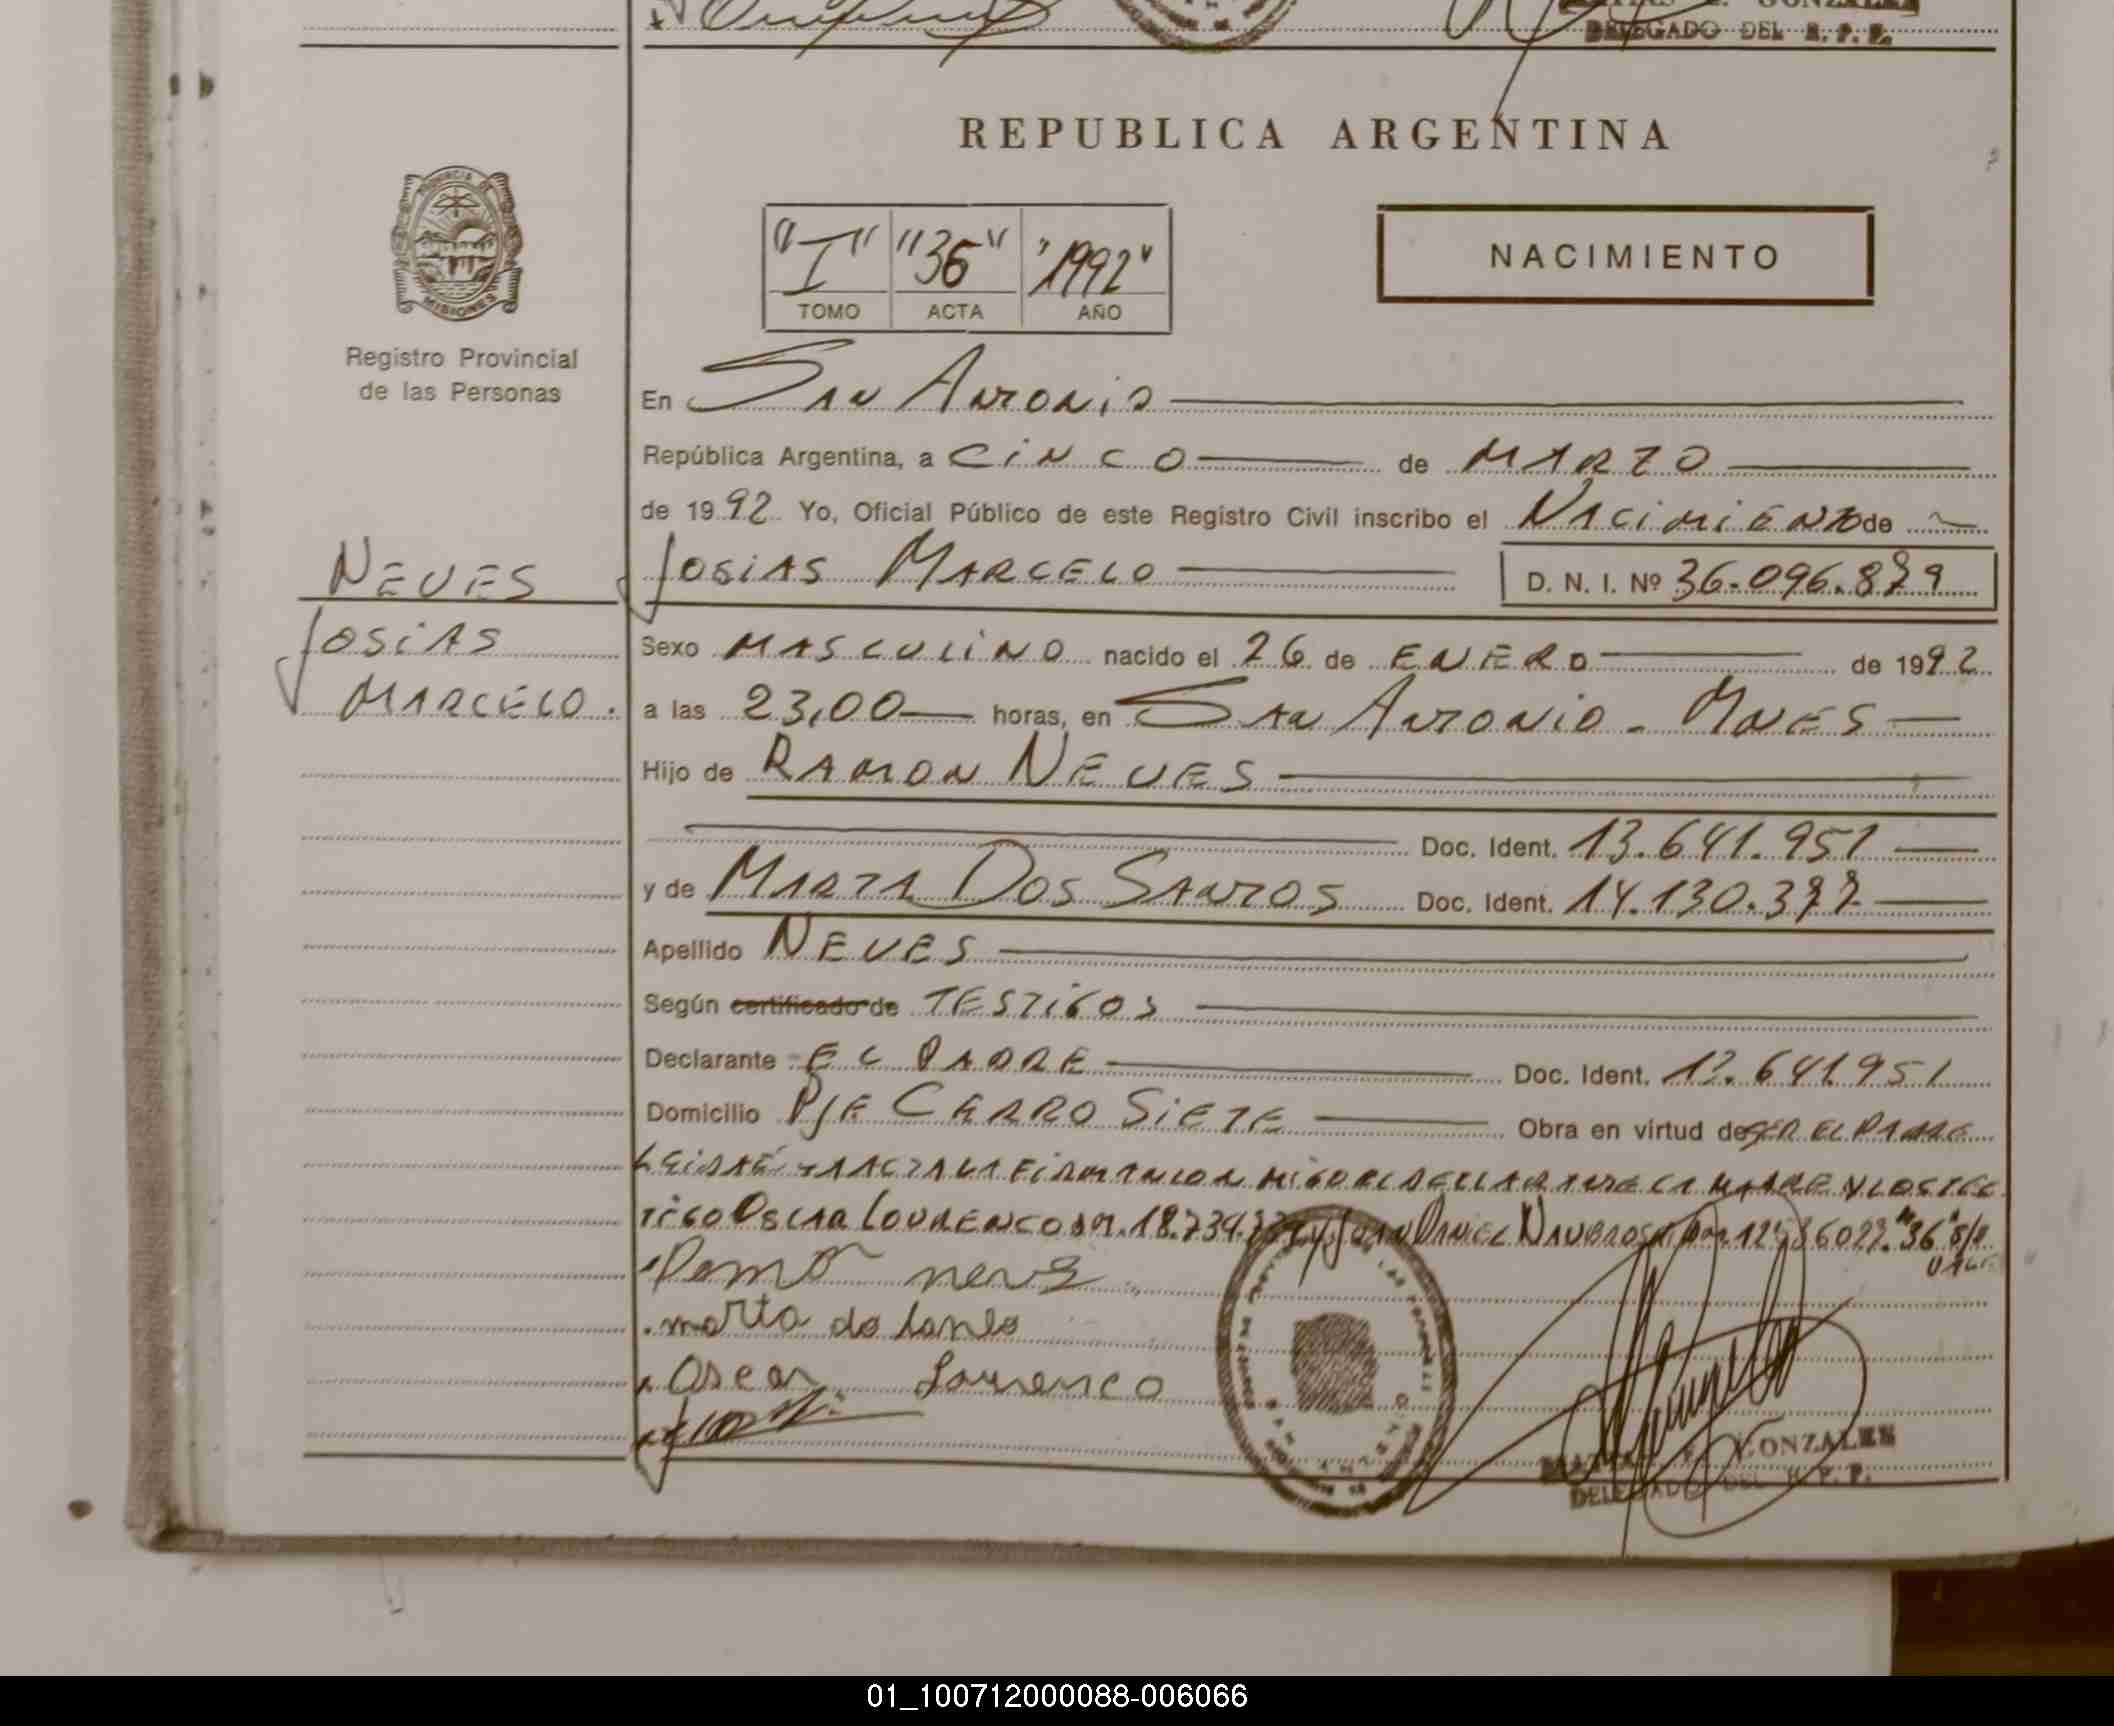 DELEGADO DEL R. P. P.
REPUBLICA ARGENTINA
PROVINCIA DE
MISIONES
Registro Provincial
de las Personas
"I" "36" "1992"
TOMO ACTA AÑO
NACIMIENTO
En San Antonio
República Argentina, a cinco de Marzo
de 1992 Yo, Oficial Público de este Registro Civil inscribo el Nacimiento de
NEVES
JOSIAS
MARCELO.
Josias Marcelo D. N. I. Nº 36.096.879
Sexo MASCULINO nacido el 26 de ENERO de 1992
a las 23,00 horas, en San Antonio - Mnes
Hijo de RAMON NEVES
Doc. Ident. 13.641.951
y de MARTA DOS SANTOS Doc. Ident. 14.130.377
Apellido NEVES
Según certificado de TESTIGOS
Declarante EL PADRE Doc. Ident. 12.641.951
Domicilio Pje CERRO SIETE Obra en virtud de SER EL PADRE
LEIDA EL ACTA LA FIRMAN CON MIGO EL DECLARANTE LA MADRE Y LOS TES
TIGO OSCAR LOURENCO DNI. 18.734. Y JUAN DANIEL "36" S/R
Ramo neve
marta do santo
Oscar Lourenco
GONZALES
DELEGADO DEL R. P. P.
01_100712000088-006066